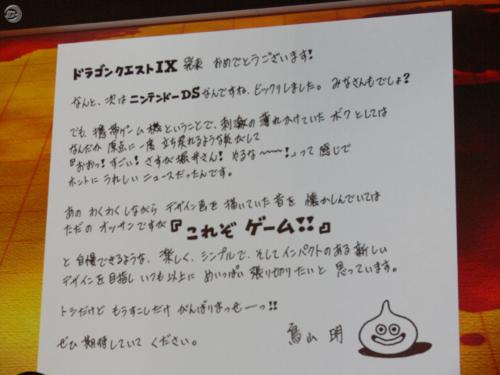 ドラゴンクエストIX 発表 おめでとうございます!
なんと、次は ニンテンドーDSなんですね、ビックリしました。みなさんもでしょ?
でも 携帯ゲーム機ということで、刺激の薄れかけていた ボクとしては
なんだか 原点に一度 立ち戻れるような気がして
『おおっ!すごい!さすが堀井さん!やるな〜〜〜!』って 感じで
ホントに うれしい ニュースだったんです。
あの わくわくしながら デザイン画を 描いていた 昔を 懐かしんでいては
ただの オッサンですが『これぞ ゲーム!!』
と 自慢できるような、楽しく、シンプルで、そして インパクトのある 新しい
デザインを目指し いつも以上に めいっぱい 張り切りたいと 思っています。
トシだけど もうすこしだけ がんばりまっせーっ!!
ぜひ 期待していて ください。
鳥山 明